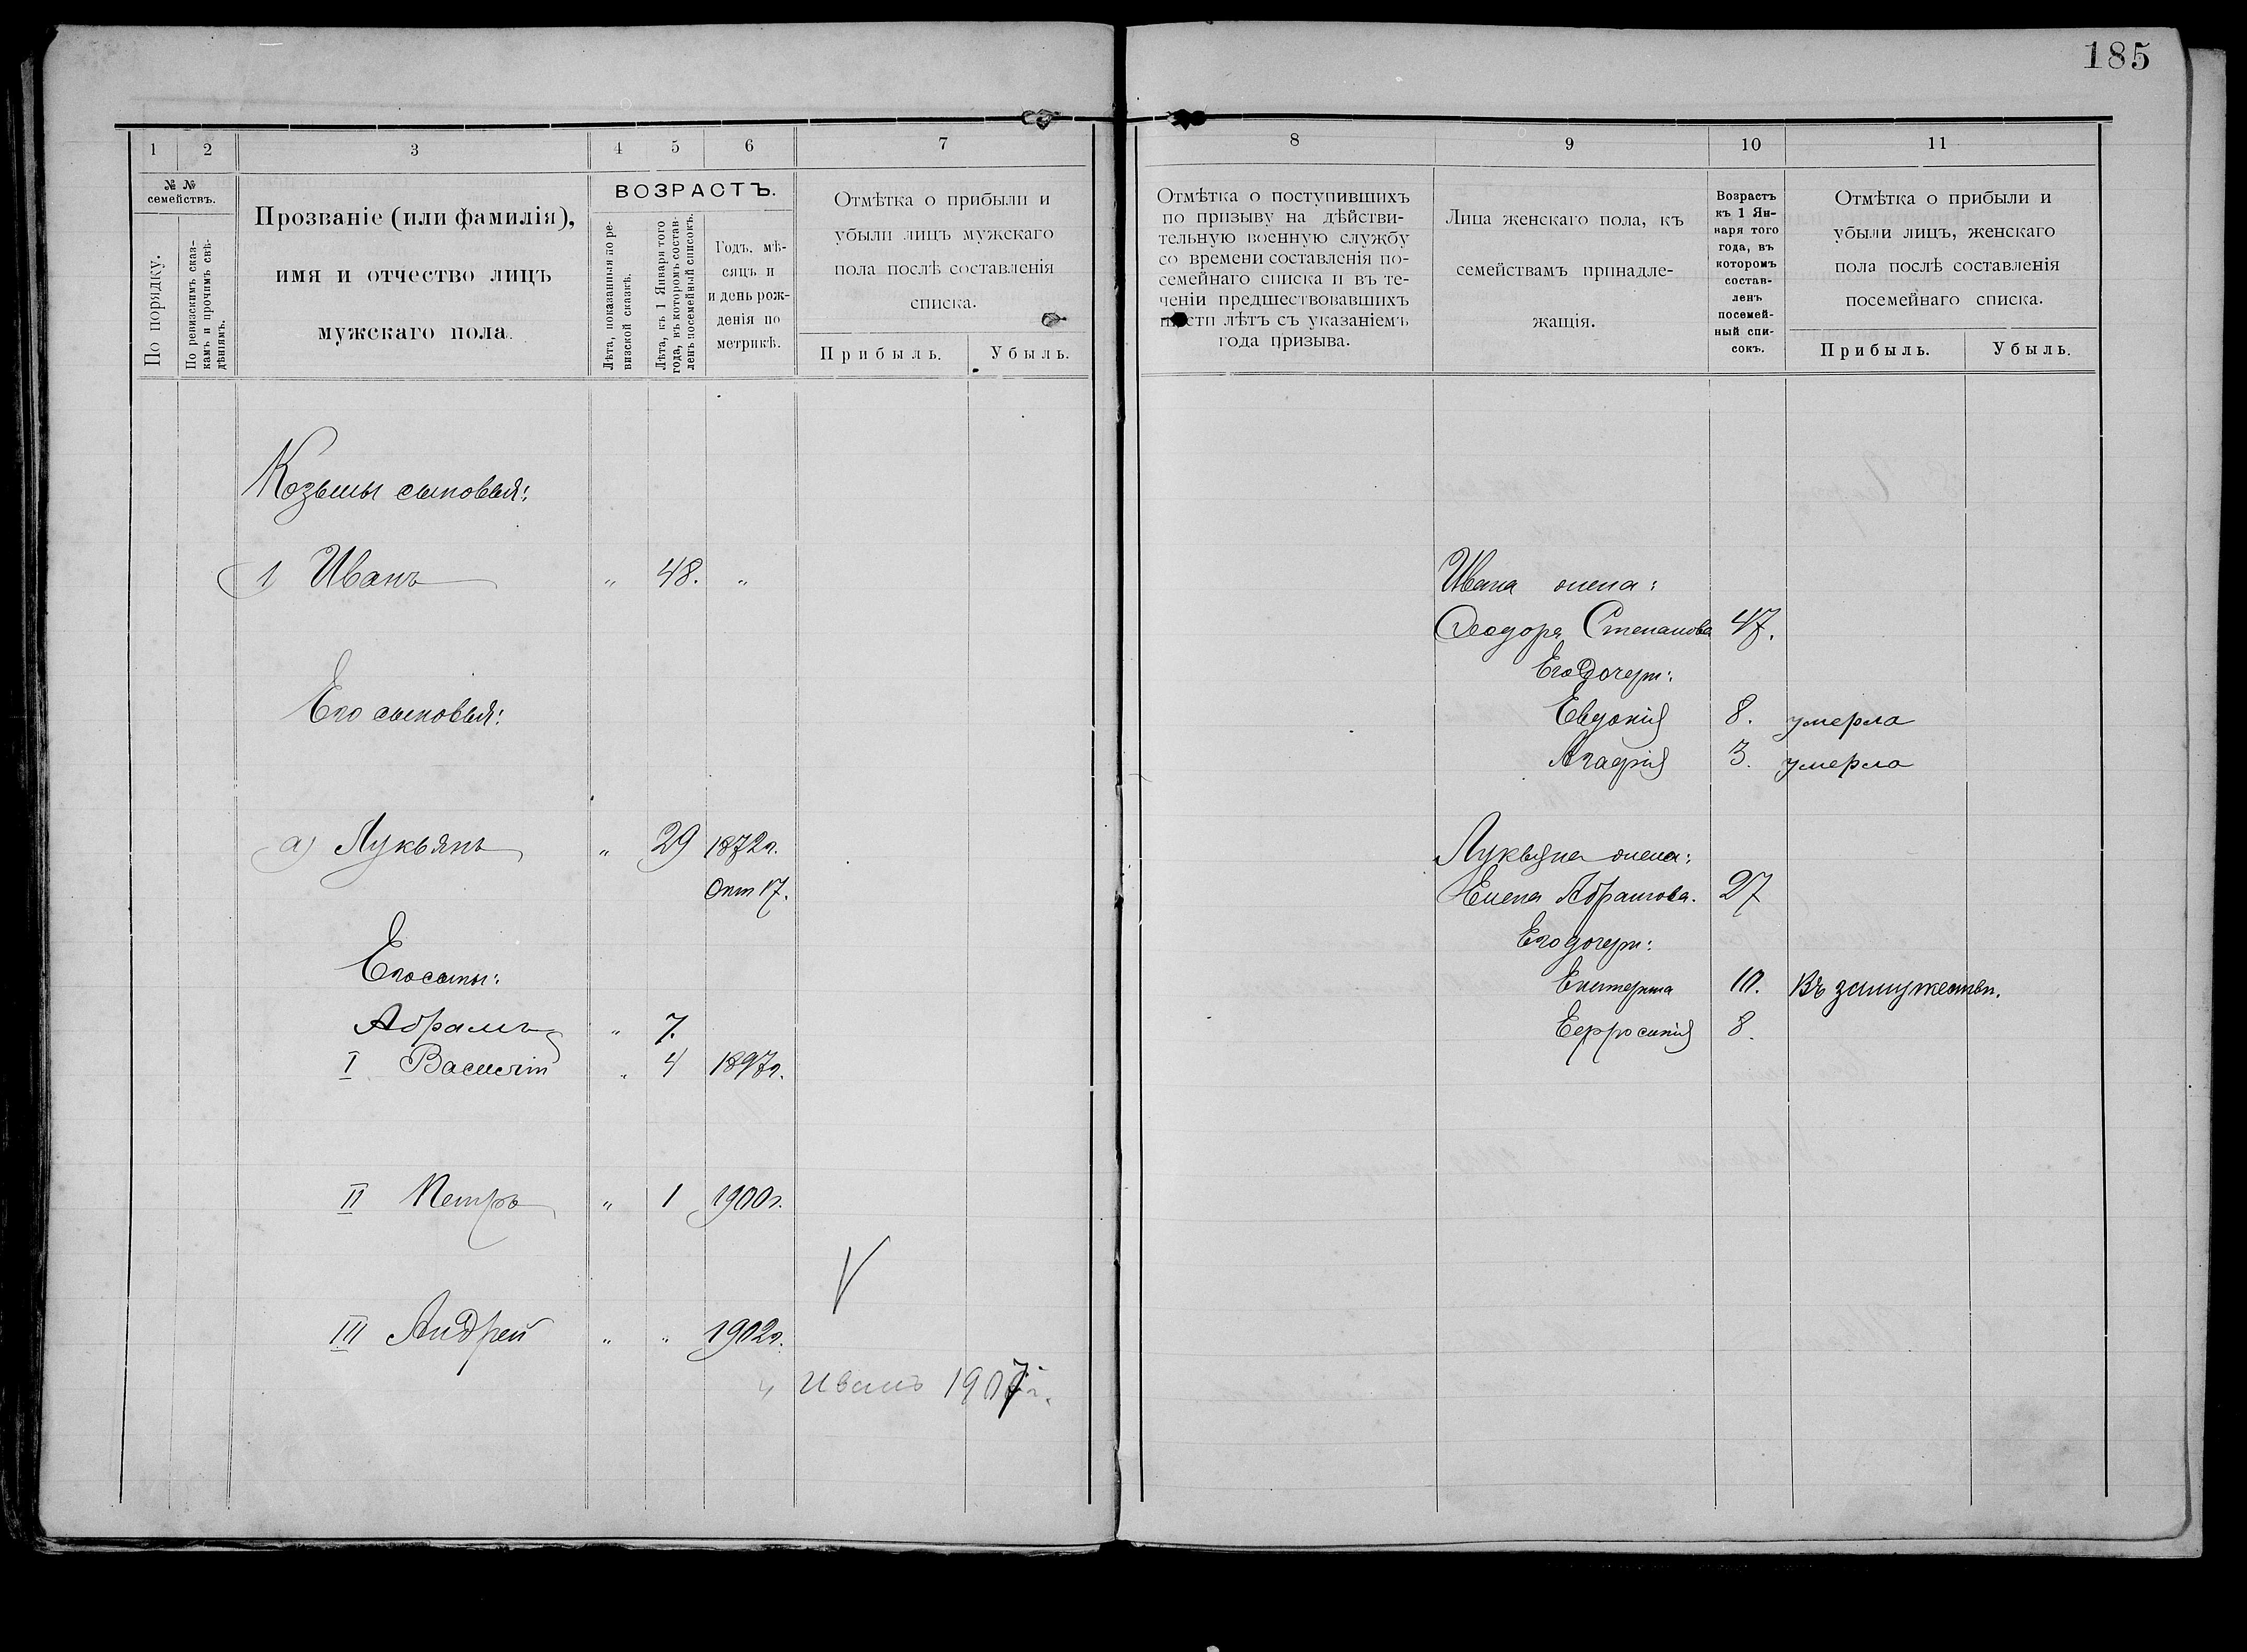 185
1 2 3 4 5 6 7
№ №
семействъ.
По порядку.
По ревизскимъ ска-
камъ и прочимъ свѣ-
дѣніямъ.
Прозваніе (или фамилія),
имя и отчество лицъ
мужскаго пола.
ВОЗРАСТЪ.
Лѣта, показанныя по ре-
визской сказкѣ.
Лѣта, къ 1 Января того
года, въ которомъ состав-
ленъ посемейный списокъ.
Годъ, мѣ-
сяцъ и
и день рож-
денія по
метрикѣ.
Отмѣтка о прибыли и
убыли лицъ мужскаго
пола послѣ составленія
списка.
Прибыль. Убыль.
Козьмы сыновья:
1 Иванъ " 48. "
Его сыновья:
а) Лукьянъ " 29 1872г.
Окт 17.
Его сыны:
Абрамъ " 7.
I Василій " 4 1897г.
II Петръ " 1 1900г.
V
III Андрей " " 1902г.
4 Иванъ 1907г.
8 9 10 11
Отмѣтка о поступившихъ
по призыву на дѣйстви-
тельную военную службу
со времени составленія по-
семейнаго списка и въ те-
ченіи предшествовавшихъ
шести лѣтъ съ указаніемъ
года призыва.
Лица женскаго пола, къ
семействамъ принадле-
жащія.
Возрастъ
къ 1 Ян-
варя того
года, въ
которомъ
состав-
ленъ
посемей-
ный спи-
сокъ.
Отмѣтка о прибыли и
убыли лицъ, женскаго
пола послѣ составленія
посемейнаго списка.
Прибыль. Убыль.
Ивана жена:
Ѳеодора Степанова 47.
Его дочери:
Евдокія 8. умерла
Агафія 3. умерла
Лукьяна жена:
Елена Абрамова. 27
Его дочери:
Екатерина 10. Въ замужествѣ.
Ефросинія 8.